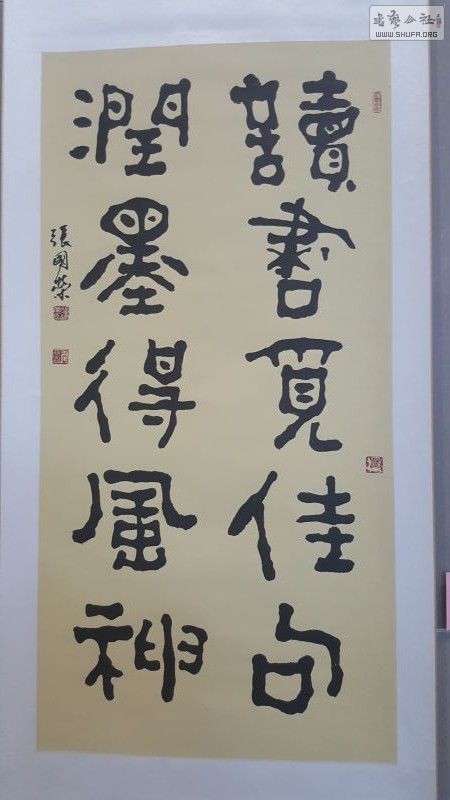 讀書覓佳句
潤墨得風神
張國榮
书艺公社
WWW.SHUFA.ORG